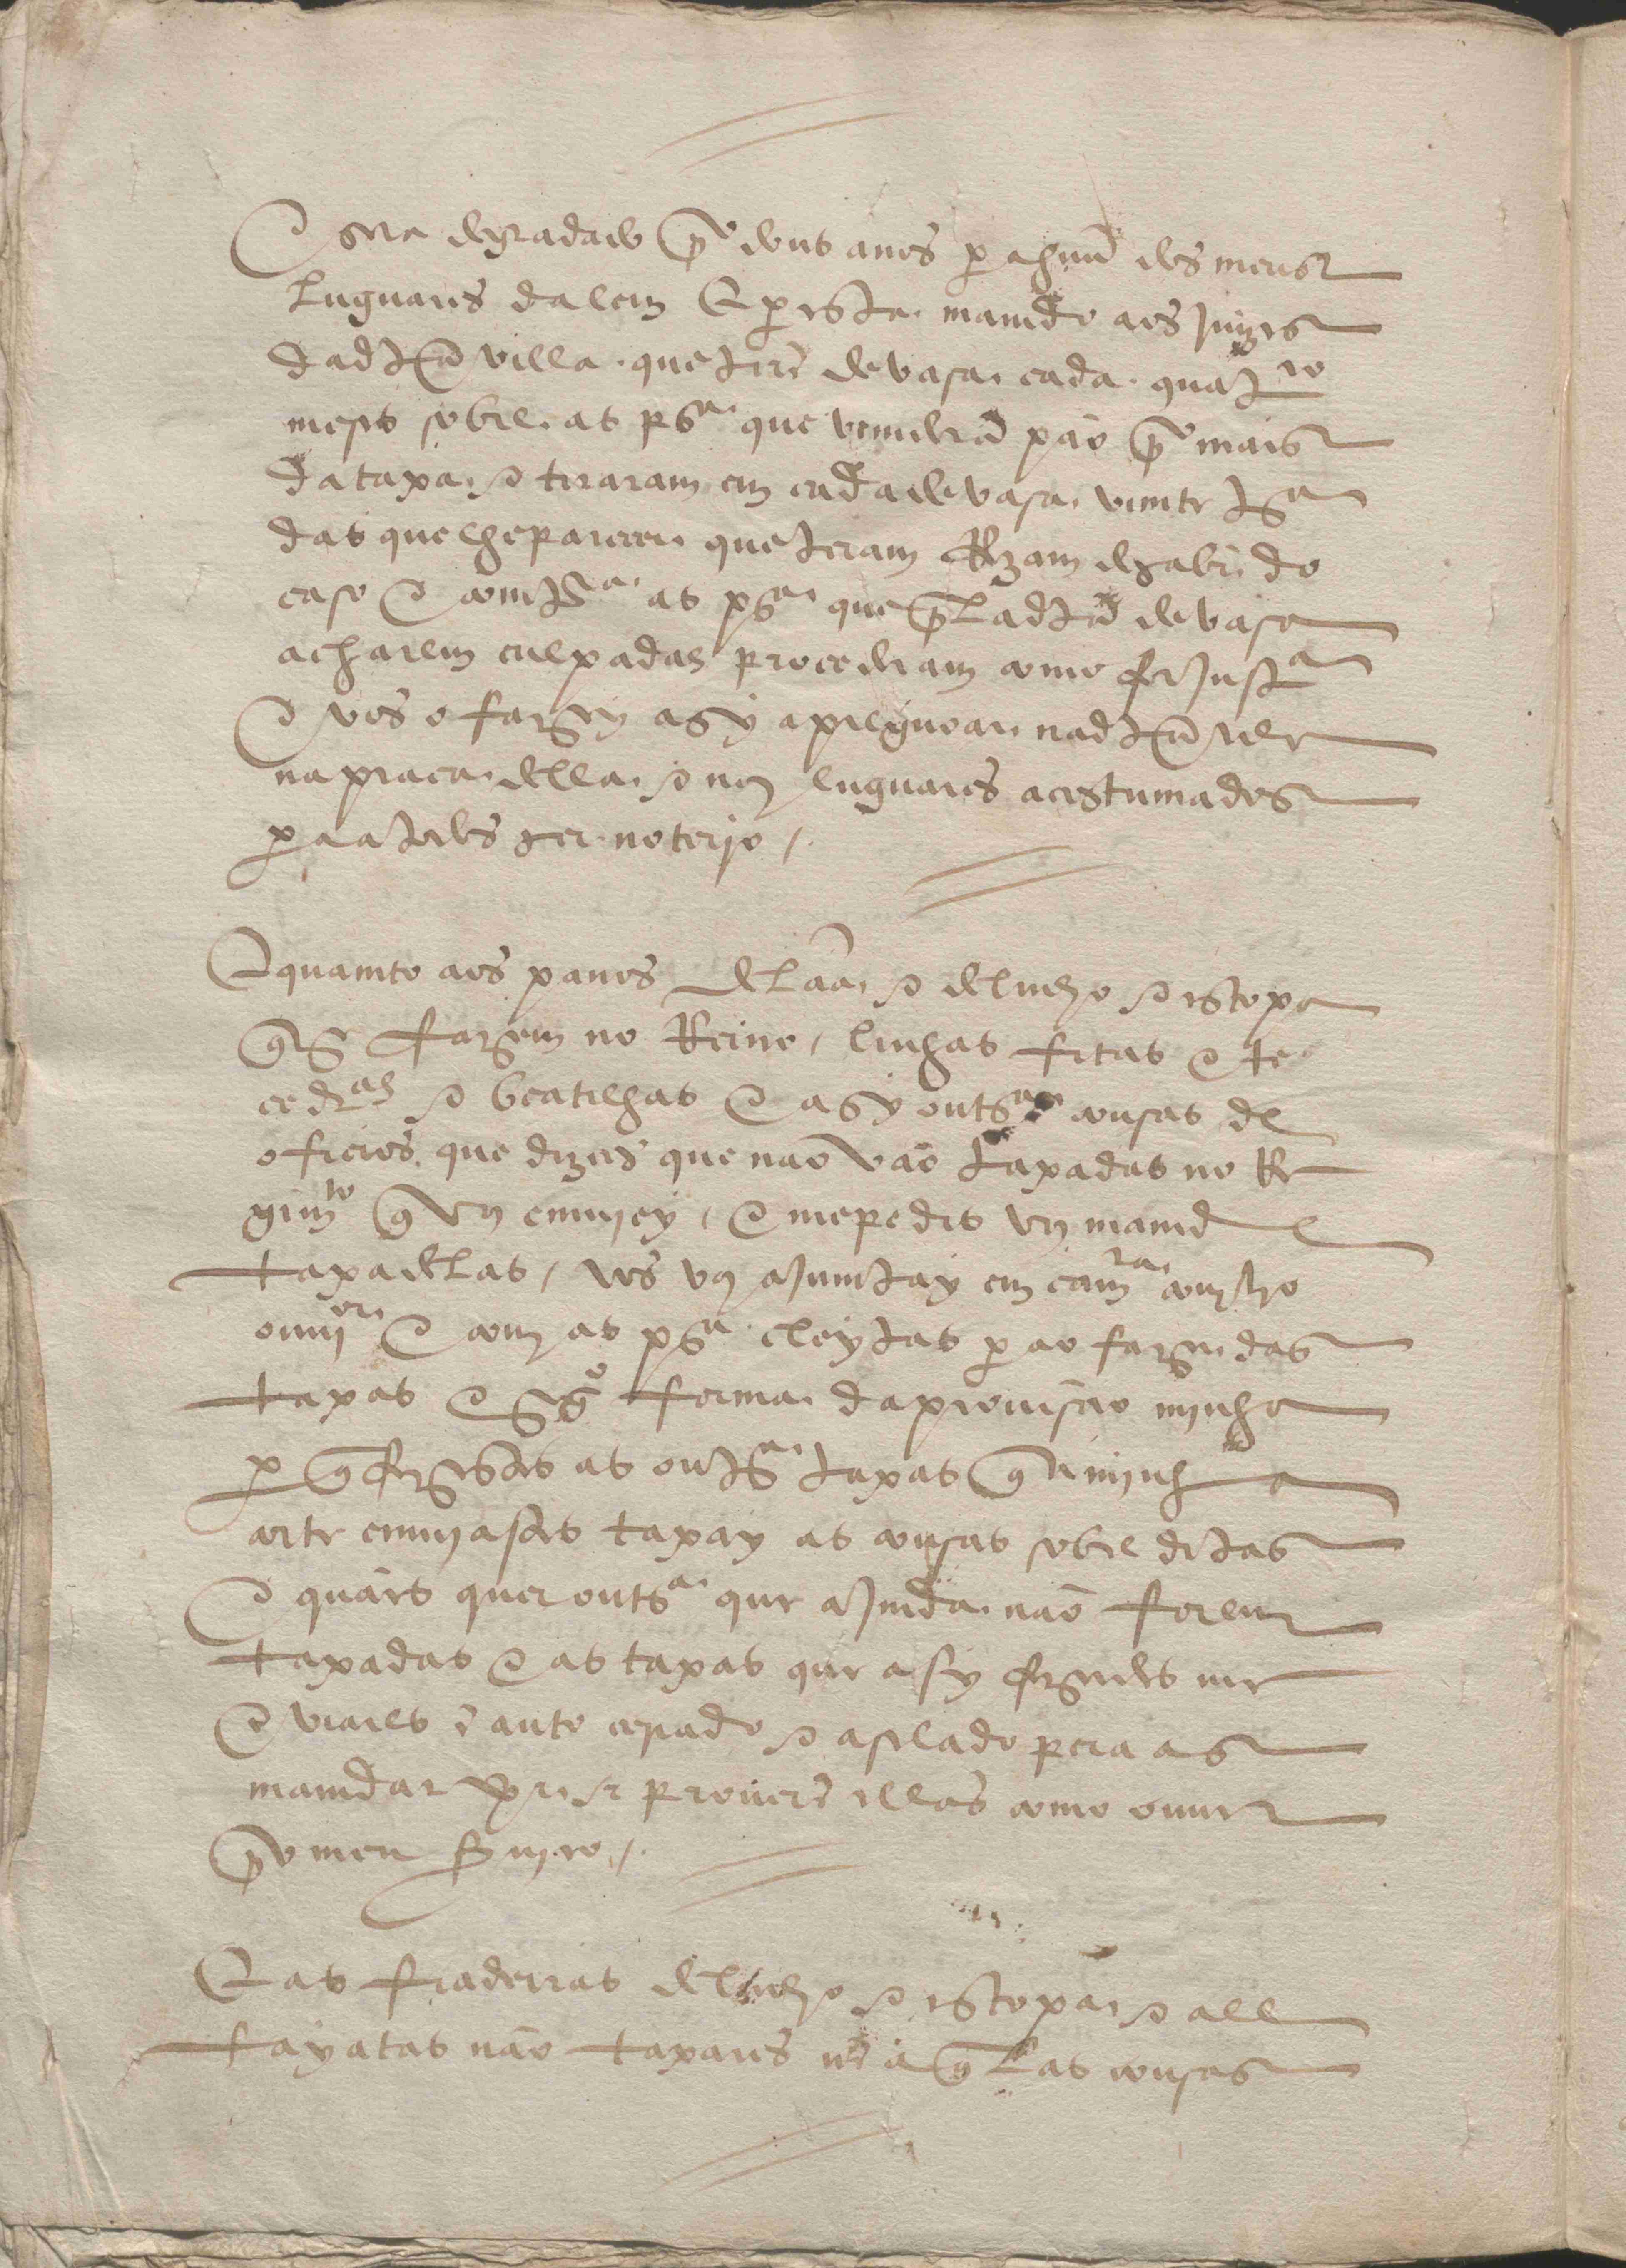 E sera degradado por dous anos pera huũ dos meus
luguares dalem E per esta mamdo aos Juizes
da dita villa que tirẽ devasa cada quatro
meses sobre as psas que vemderã pão por mais
da taxa e tiraram em cada devasa vimte tas
das que lhe parecer que teram Rezam de saber do
caso E comtra as psas que pela dita devasa
acharem culpadas procederam como for Justa
E vos o fazey asy apreguoar na dita
na praca della e nos luguares acustumados
pera a todos ser notorjo /.
E quamto aos panos de lãa e de linho e estopa
que se fazem no Reino / linhas fitas E te
cedras e beatilhas E asy outras cousas de
oficios que dizeis que não vão taxadas no Re
gimto que vos emviey / E me pedis vos mamde
taxa dellas / vos vos ajumtay em camra com ho
ouvjor E com as psas eleytas pera o fazer das
taxas E segdo forma da provisão minha
per que fizestes as outras taxas que a minha
corte emviastes taxay as cousas sobre ditas
E quaes quer outras que ajmda não forem
taxadas E as taxas que asy fizerdes me
emviares o auto cerado e aselado pera as
mamdar ver e se proverẽ ellas como ouver
por meu servjco /.
E as fiadeiras de linho e estopa e all
fayatas não taxares nẽ aquelas cousas